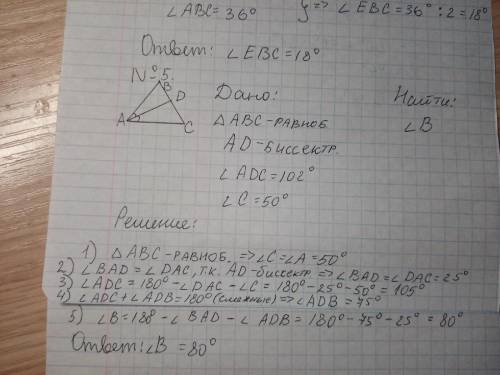 ∠ABC = 36°
} => ∠EBC = 36° : 2 = 18°
Ответ: ∠EBC = 18°
№5.
A B D C
Дано:
Найти:
△ABC-равноб.
∠B
AD-биссектр.
∠ADC = 102°
∠C = 50°
Решение:
1) △ABC-равноб. => ∠C = ∠A = 50°
2) ∠BAD = ∠DAC, т.к. AD-биссектр. => ∠BAD = ∠DAC = 25°
3) ∠ADC = 180° - ∠DAC - ∠C = 180° - 25° - 50° = 105°
4) ∠ADC + ∠ADB = 180° (смежные) => ∠ADB = 75°
5) ∠B = 188 - ∠BAD - ∠ADB = 180° - 75° - 25° = 80°
Ответ: ∠B = 80°